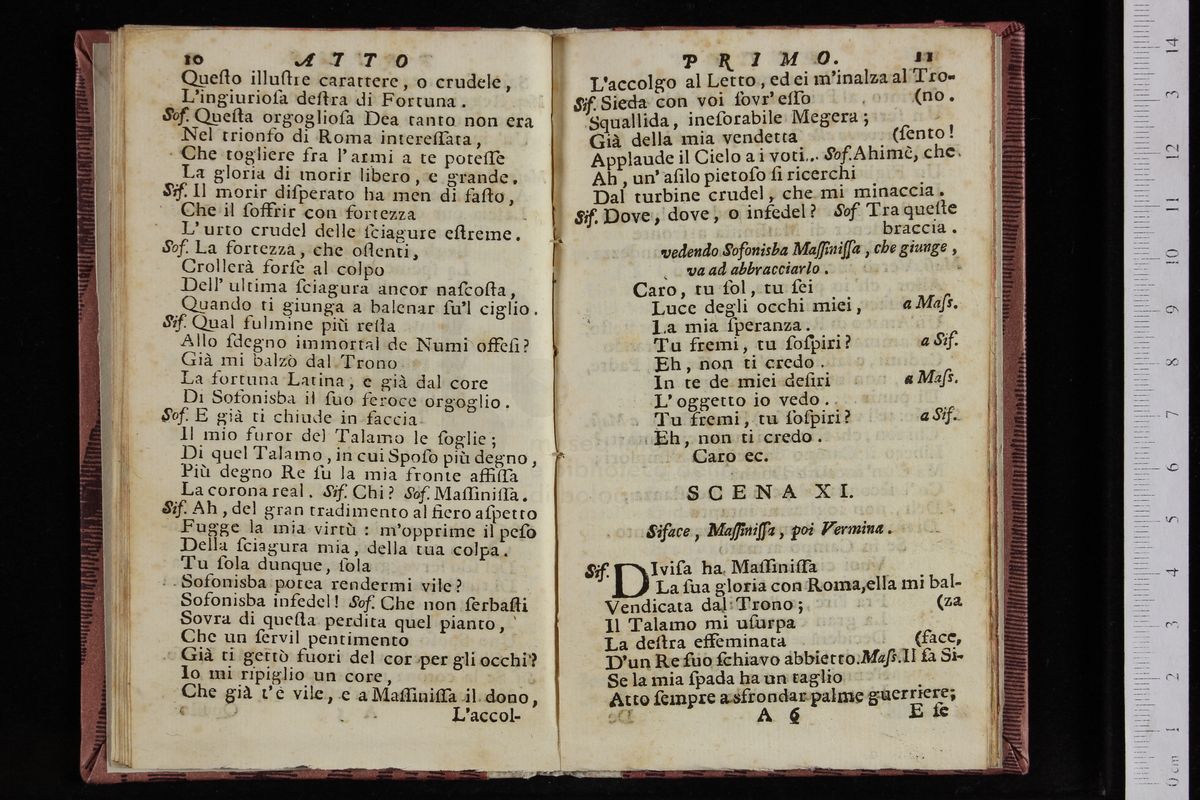 10 ATTO
Queſto illuſtre carattere, o crudele,
L'ingiurioſa deſtra di Fortuna.
Sof. Queſta orgoglioſa Dea tanto non era
Nel trionfo di Roma intereſſata,
Che togliere fra l'armi a te poteſſe
La gloria di morir libero, e grande.
Sif. Il morir diſperato ha men di faſto,
Che il ſoffrir con fortezza
L'urto crudel delle ſciagure eſtreme.
Sof. La fortezza, che oſtenti,
Crollerà forſe al colpo
Dell' ultima ſciagura ancor naſcoſta,
Quando ti giunga a balenar ſu'l ciglio.
Sif. Qual fulmine più reſta
Allo ſdegno immortal de Numi offeſi?
Già mi balzò dal Trono
La fortuna Latina, e già dal core
Di Sofonisba il ſuo feroce orgoglio.
Sof. E già ti chiude in faccia
Il mio furor del Talamo le ſoglie;
Di quel Talamo, in cui Spoſo più degno,
Più degno Re ſu la mia fronte affiſſa
La corona real. Sif. Chi? Sof. Maſſiniſſa.
Sif. Ah, del gran tradimento al fiero aſpetto
Fugge la mia virtù: m'opprime il peſo
Della ſciagura mia, della tua colpa.
Tu ſola dunque, ſola
Sofonisba potea rendermi vile?
Sofonisba infedel! Sof. Che non ſerbaſti
Sovra di queſta perdita quel pianto,
Che un ſervil pentimento
Già ti gettò fuori del cor per gli occhi?
Io mi ripiglio un core,
Che già t'è vile, e a Maſſiniſſa il dono,
L'accol-
PRIMO. 11
L'accolgo al Letto, ed ei m'inalza al Tro-
Sif. Sieda con voi ſovr'eſſo (no.
Squallida, ineſorabile Megera;
Già della mia vendetta (ſento!
Applaude il Cielo a i voti... Sof. Ahimè, che
Ah, un' aſilo pietoſo ſi ricerchi
Dal turbine crudel, che mi minaccia.
Sif. Dove, dove, o infedel? Sof Tra queſte
braccia.
vedendo Sofonisba Maſſiniſſa, che giunge,
va ad abbracciarlo.
Caro, tu ſol, tu ſei
Luce degli occhi miei, a Maſs.
La mia ſperanza.
Tu fremi, tu ſoſpiri? a Sif.
Eh, non ti credo.
In te de miei deſiri a Maſs.
L'oggetto io vedo.
Tu fremi, tu ſoſpiri? a Sif.
Eh, non ti credo.
Caro ec.
SCENA XI.
Siface, Maſſiniſſa, poi Vermina.
Sif. DIviſa ha Maſſiniſſa
La ſua gloria con Roma, ella mi bal-
Vendicata dal Trono; (za
Il Talamo mi uſurpa
La deſtra effeminata (face,
D'un Re ſuo ſchiavo abbietto. Maſs. Il ſa Si-
Se la mia ſpada ha un taglio
Atto ſempre a sfrondar palme guerriere;
A 6 E ſe
0 cm 1 2 3 4 5 6 7 8 9 10 11 12 3 14